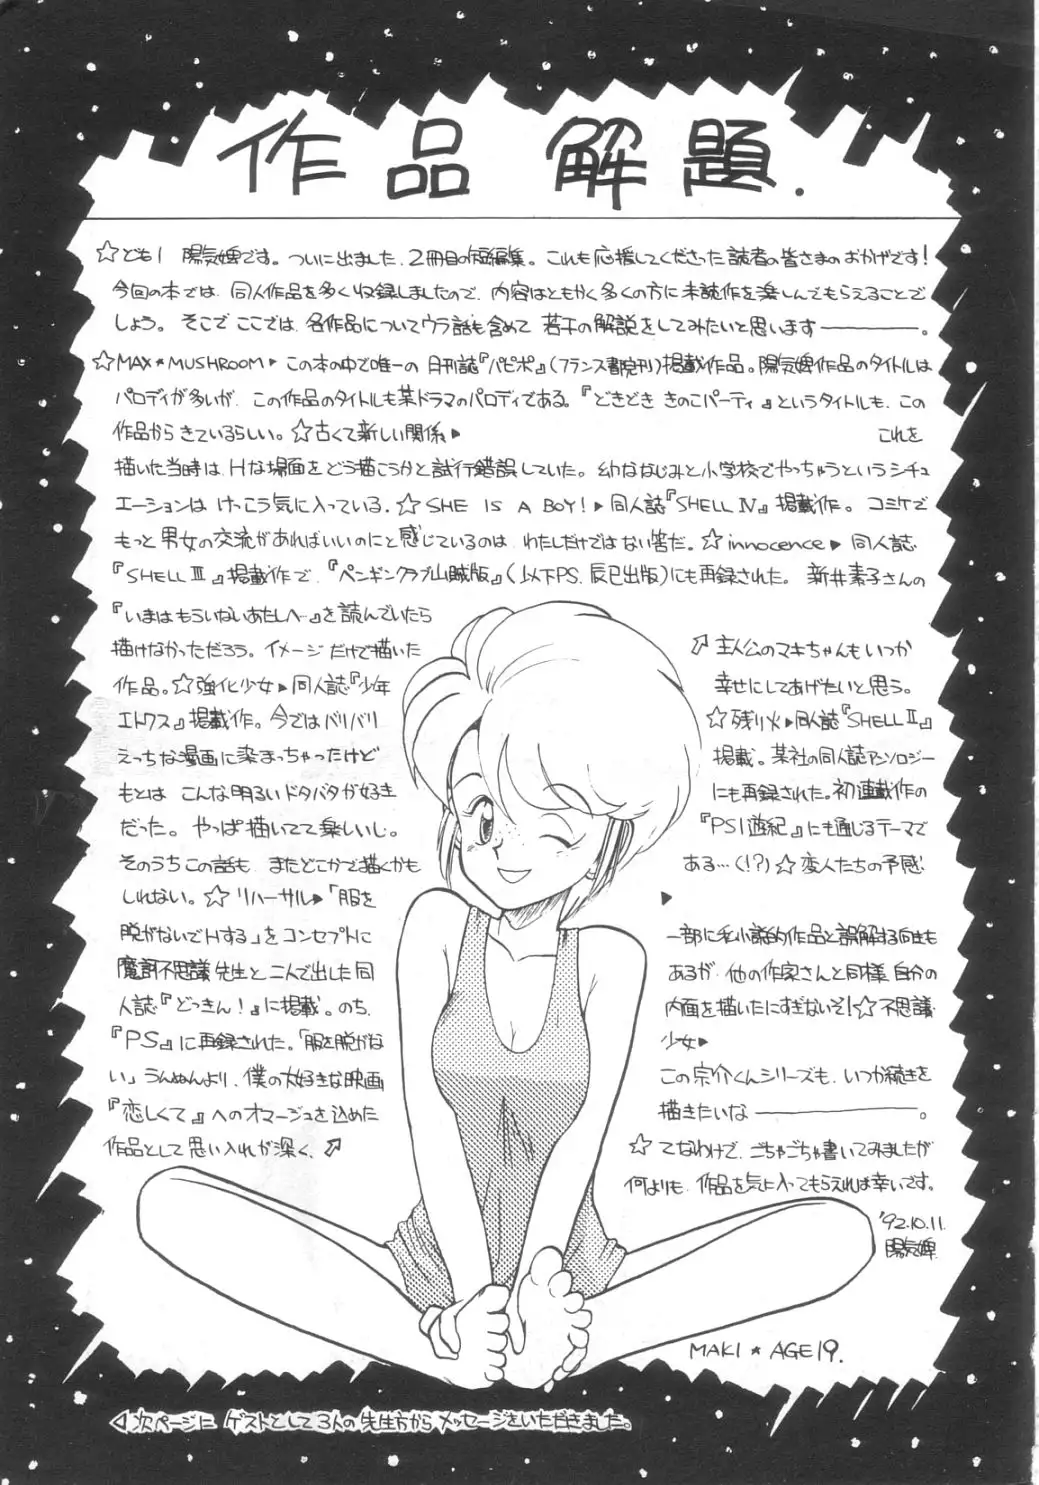 作品解題.
☆ども! 陽気婢です。ついに出ました、2冊目の短編集。これも応援してくださった読者の皆さまのおかげです!
今回の本では、同人作品を多く収録しましたので、内容はともかく多くの方に未読作を楽しんでもらえることで
しょう。そこでここでは、各作品についてウラ話も含めて若干の解説をしてみたいと思います―――。
☆MAX★MUSHROOM▶この本の中で唯一の月刊誌『パピポ』(フランス書院刊)掲載作品。陽気婢作品のタイトルは
パロディが多いが、この作品のタイトルも某ドラマのパロディである。『どきどききのこパーティ』というタイトルも、この
作品からきているらしい。☆古くて新しい関係▶ これを
描いた当時は、Hな場面をどう描こうかと試行錯誤していた。幼ななじみと小学校でやっちゃうというシチュ
エーションはけっこう気に入っている。☆SHE IS A BOY!▶同人誌『SHELL Ⅳ』掲載作。コミケで
もっと男女の交流があればいいのにと感じているのは、わたしだけではない筈だ。☆innocence▶同人誌
『SHELL Ⅲ』掲載作で、『ペンギンクラブ山賊版』(以下PS、辰巳出版)にも再録された。新井素子さんの
『いまはもういないあたしへ…』を読んでいたら
描けなかっただろう。イメージだけで描いた
作品。☆強化少女▶同人誌『少年
エトワス』掲載作。今ではバリバリ
えっちな漫画に染まっちゃったけど
もとはこんな明るいドタバタが好き
だった。やっぱ描いてて楽しいし。
そのうちこの話もまたどこかで描くかも
しれない。☆リハーサル▶「服を
脱がないでHする」をコンセプトに
魔訶不思議先生と二人で出した同
人誌『どっきん!』に掲載。のち、
『PS』に再録された。「服を脱がな
い」うんぬんより、僕の大好きな映画
『恋しくて』へのオマージュを込めた
作品として思い入れが深く、↗
↗主人公のマキちゃんもいつか
幸せにしてあげたいと思う。
☆残り火▶同人誌『SHELL Ⅱ』
掲載。某社の同人誌アンソロジー
にも再録された。初連載作の
『PSI遊紀』にも通じるテーマで
ある…(!?)☆変人たちの予感
▶
一部に私小説的作品と誤解する向きも
あるが、他の作家さんと同様、自分の
内面を描いたにすぎないぞ!☆不思議
少女▶
この宗介くんシリーズも、いつか続きを
描きたいな―――。
☆てなわけで、ごちゃごちゃ書いてみましたが
何よりも、作品を気に入ってもらえれば幸いです。
'92.10.11.
陽気婢
MAKI★AGE19.
◁次ページに ゲストとして3人の先生方からメッセージをいただきました。